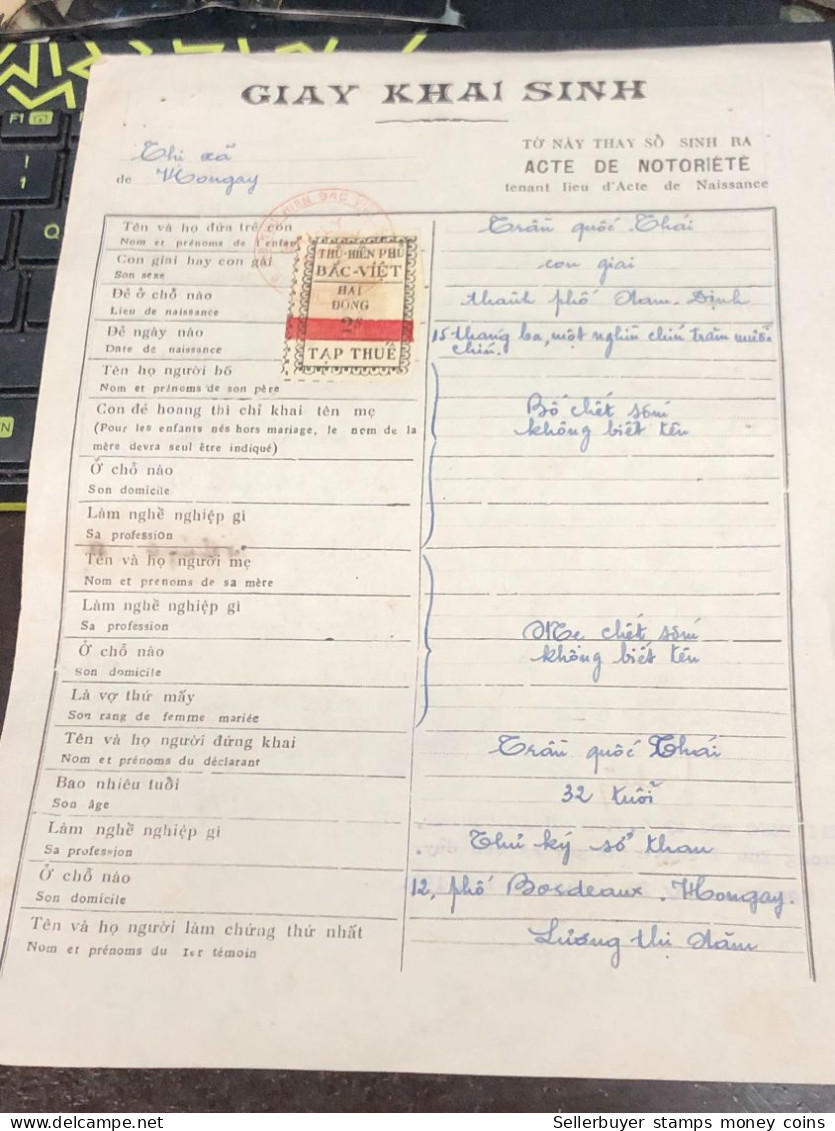 GIAY KHAI SINH
TỜ NÀY THAY SỔ SINH RA
ACTE DE NOTORIÉTÉ
tenant lieu d'Acte de Naissance
Thị xã
de Hongay
Tên và họ đứa trẻ con
Nom et prénoms de l'enfant
Trần quốc Thái
Con giai hay con gái
Son sexe
con giai
Đẻ ở chỗ nào
Lieu de naissance
thành phố Nam-Định
Đẻ ngày nào
Date de naissance
15 tháng ba, một nghìn chín trăm mười
chín.
THỦ-HIẾN PHỦ
BẮC-VIỆT
HAI
ĐỒNG
2$
TẠP THUẾ
Tên họ người bố
Nom et prénoms de son père
Con đẻ hoang thì chỉ khai tên mẹ
(Pour les enfants nés hors mariage, le nom de la
mère devra seul être indiqué)
Bố chết sớm
không biết tên
Ở chỗ nào
Son domicile
Làm nghề nghiệp gì
Sa profession
Tên và họ người mẹ
Nom et prenoms de sa mère
Làm nghề nghiệp gì
Sa profession
Mẹ chết sớm
không biết tên
Ở chỗ nào
Son domicile
Là vợ thứ mấy
Son rang de femme mariée
Tên và họ người đứng khai
Nom et prénoms du déclarant
Trần quốc Thái
Bao nhiêu tuổi
Son âge
32 tuổi
Làm nghề nghiệp gì
Sa profession
Thư ký sở than
Ở chỗ nào
Son domicile
12, phố Bordeaux. Hongay.
Tên và họ người làm chứng thứ nhất
Nom et prénoms du 1er témoin
Lương thị Năm
F1
Sellerbuyer stamps money coins